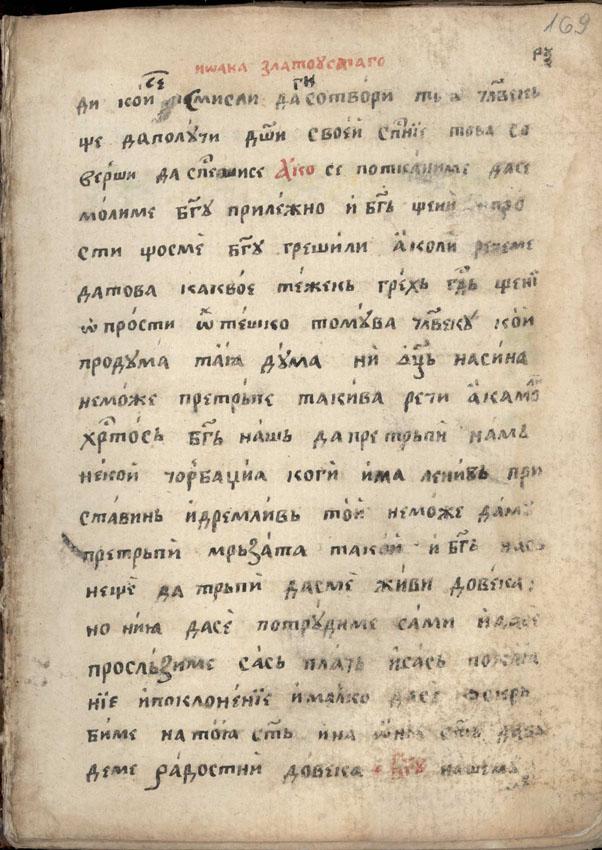 169
рѯ҃
иѡана златоустаго
ди кои се смисли да сотвори тъѧ чл҃векь
ще даполꙋчи дш҃и своей сп҃нїе това со
верши да сп҃ешисе Ако се потꙋдиме дасе
молиме бг҃ꙋ прилежно и бг҃ь щени про
сти щосме бг҃ꙋ грешили аколи речеме
датова каквое тежень грехь гд҃ь щени
ѿпрости ѿтешко томꙋва чл҃векꙋ кой
продꙋма таѩ дꙋма ни ѻц҃ь насина
неможе претрьпе такива речи акамо
хрт҃ось бг҃ь нашь да претрьпи намь
некой чорбаџиа коги има ленивь при
ставинь идремливь той неможе дамꙋ
претрьпи мрьзата такой и бг҃ь нась
неще да трьпи дасме живи довека
но ниѩ дасе потрꙋдиме сами идасе
просльзиме сась плачь исась
нїе ипоклоненїе ималко дасе
биме на тоѩ ст҃ь ина ѡни ст҃ь дабꙋ
деме радостни довека бг҃ꙋ нашемꙋ